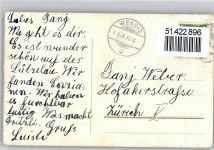 Liebes Dany
Wie geht es dir.
Es ist wunder
schön auf der
Lützelau. Wir
fanden Enzia-
nen. Wir haben
es furchtbar
lustig. Was macht
Gruss
Luisli
WEGGIS
51.422.896
Dany Weber
Hofackerstrasse
Zürich V